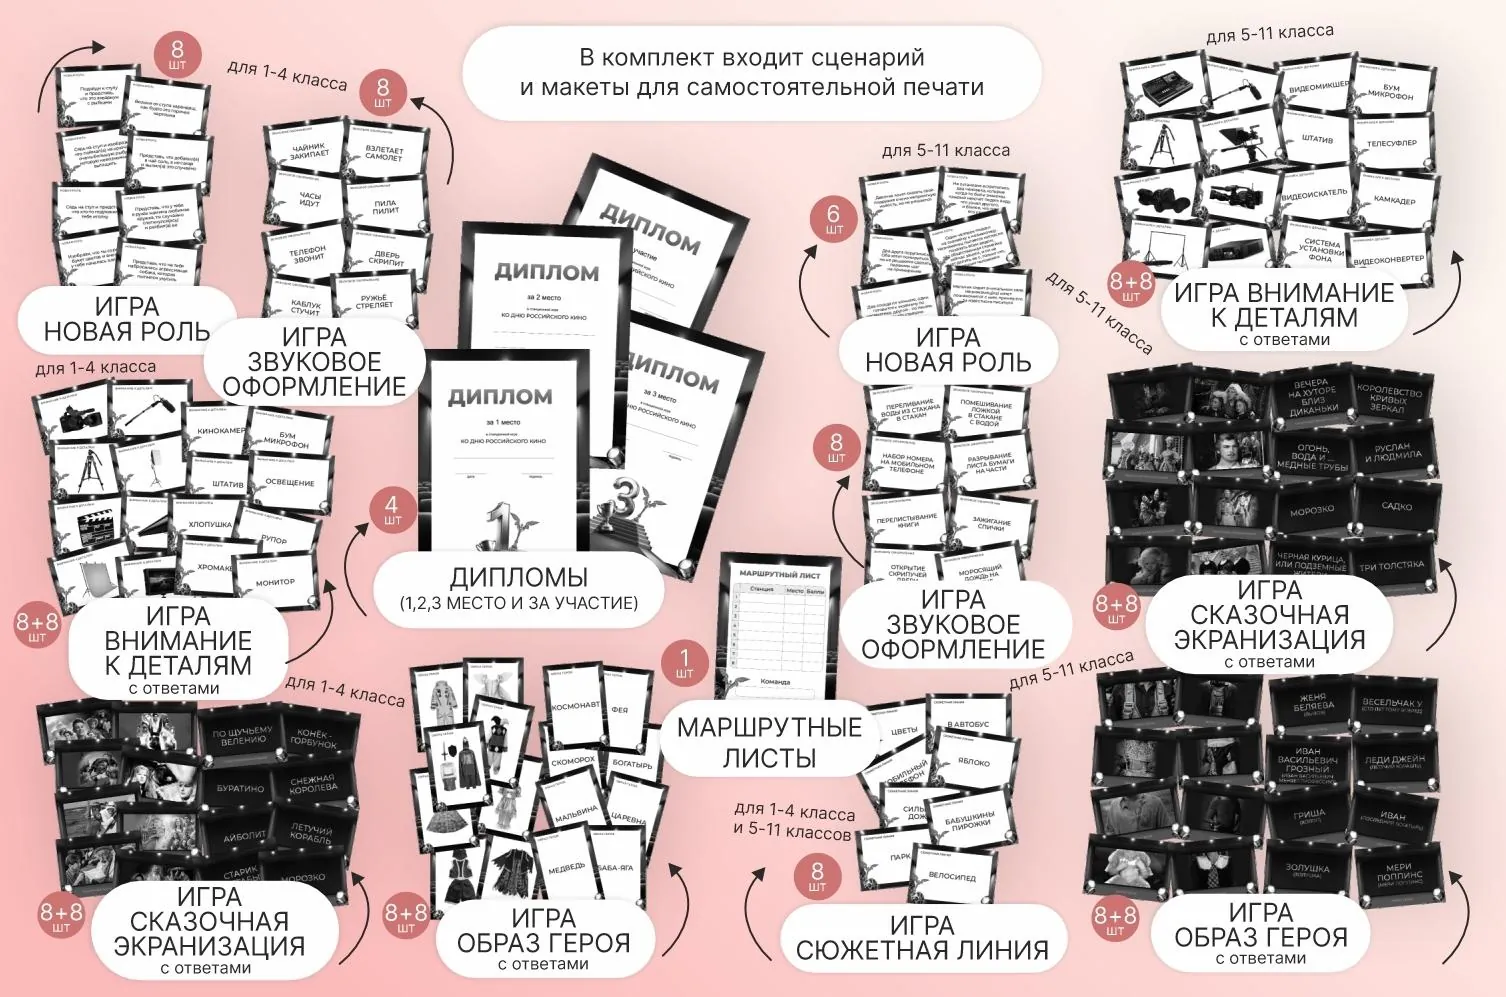 В комплект входит сценарий
и макеты для самостоятельной печати
8
шт
для 1-4 класса
8
шт
ЧАЙНИК
ЗАКИПАЕТ
ВЗЛЕТАЕТ
САМОЛЕТ
ЧАСЫ
ИДУТ
ПИЛА
ПИЛИТ
ТЕЛЕФОН
ЗВОНИТ
ДВЕРЬ
СКРИПИТ
КАБЛУК
СТУЧИТ
РУЖЬЁ
СТРЕЛЯЕТ
ИГРА
НОВАЯ РОЛЬ
ИГРА
ЗВУКОВОЕ
ОФОРМЛЕНИЕ
для 1-4 класса
КИНОКАМЕР
БУМ
МИКРОФОН
ШТАТИВ
ОСВЕЩЕНИЕ
ХЛОПУШКА
РУПОР
ХРОМАК
МОНИТОР
8+8
шт
ИГРА
ВНИМАНИЕ
К ДЕТАЛЯМ
с ответами
ДИПЛОМ
за участие
ДИПЛОМ
за 2 место
КО ДНЮ РОССИЙСКОГО КИНО
ДИПЛОМ
за 3 место
КО ДНЮ РОССИЙСКОГО КИНО
ДИПЛОМ
за 1 место
КО ДНЮ РОССИЙСКОГО КИНО
1
3
4
шт
ДИПЛОМЫ
(1,2,3 МЕСТО И ЗА УЧАСТИЕ)
для 5-11 класса
6
шт
ИГРА
НОВАЯ РОЛЬ
8
шт
ПЕРЕЛИВАНИЕ
ВОДЫ ИЗ СТАКАНА
В СТАКАН
ПОМЕШИВАНИЕ
ЛОЖКОЙ
В СТАКАНЕ
С ВОДОЙ
НАБОР НОМЕРА
НА МОБИЛЬНОМ
ТЕЛЕФОНЕ
РАЗРЫВАНИЕ
ЛИСТА БУМАГИ
НА ЧАСТИ
ПЕРЕЛИСТЫВАНИЕ
КНИГИ
ЗАЖИГАНИЕ
СПИЧКИ
ОТКРЫТИЕ
СКРИПУЧЕЙ
ДВЕРИ
МОРОСЯЩИЙ
ДОЖДЬ НА
ИГРА
ЗВУКОВОЕ
ОФОРМЛЕНИЕ
для 5-11 класса
ВИДЕОМИКШЕР
БУМ
МИКРОФОН
ШТАТИВ
ТЕЛЕСУФЛЕР
ВИДЕОИСКАТЕЛЬ
КАМКАДЕР
СИСТЕМА
УСТАНОВКИ
ФОНА
ВИДЕОКОНВЕРТЕР
8+8
шт
ИГРА ВНИМАНИЕ
К ДЕТАЛЯМ
с ответами
для 5-11 класса
ВЕЧЕРА
НА ХУТОРЕ
БЛИЗ
ДИКАНЬКИ
КОРОЛЕВСТВО
КРИВЫХ
ЗЕРКАЛ
ОГОНЬ,
ВОДА И ...
МЕДНЫЕ ТРУБЫ
РУСЛАН
И ЛЮДМИЛА
МОРОЗКО
САДКО
ЧЕРНАЯ КУРИЦА,
ИЛИ ПОДЗЕМНЫЕ
ЖИТЕЛИ
ТРИ ТОЛСТЯКА
8+8
шт
ИГРА
СКАЗОЧНАЯ
ЭКРАНИЗАЦИЯ
с ответами
МАРШРУТНЫЙ ЛИСТ
Станция Место Баллы
Команда
1
шт
МАРШРУТНЫЕ
ЛИСТЫ
для 1-4 класса
ПО ЩУЧЬЕМУ
ВЕЛЕНИЮ
КОНЁК -
ГОРБУНОК
БУРАТИНО
СНЕЖНАЯ
КОРОЛЕВА
АЙБОЛИТ
ЛЕТУЧИЙ
КОРАБЛЬ
СТАРИК
МОРОЗКО
8+8
шт
ИГРА
СКАЗОЧНАЯ
ЭКРАНИЗАЦИЯ
с ответами
КОСМОНАВТ
ФЕЯ
СКОМОРОХ
БОГАТЫРЬ
МАЛЬВИНА
ЦАРЕВНА
МЕДВЕДЬ
БАБА-ЯГА
8+8
шт
ИГРА
ОБРАЗ ГЕРОЯ
с ответами
ЦВЕТЫ
В АВТОБУС
ЯБЛОКО
БАБУШКИНЫ
ПИРОЖКИ
ПАРК
ВЕЛОСИПЕД
для 1-4 класса
и 5-11 классов
8
шт
ИГРА
СЮЖЕТНАЯ ЛИНИЯ
для 5-11 класса
ЖЕНЯ
БЕЛЯЕВА
ВЕСЕЛЬЧАК У
ИВАН
ВАСИЛЬЕВИЧ
ГРОЗНЫЙ
ЛЕДИ ДЖЕЙН
ГРИША
ИВАН
ЗОЛУШКА
МЕРИ
ПОППИНС
8+8
шт
ИГРА
ОБРАЗ ГЕРОЯ
с ответами